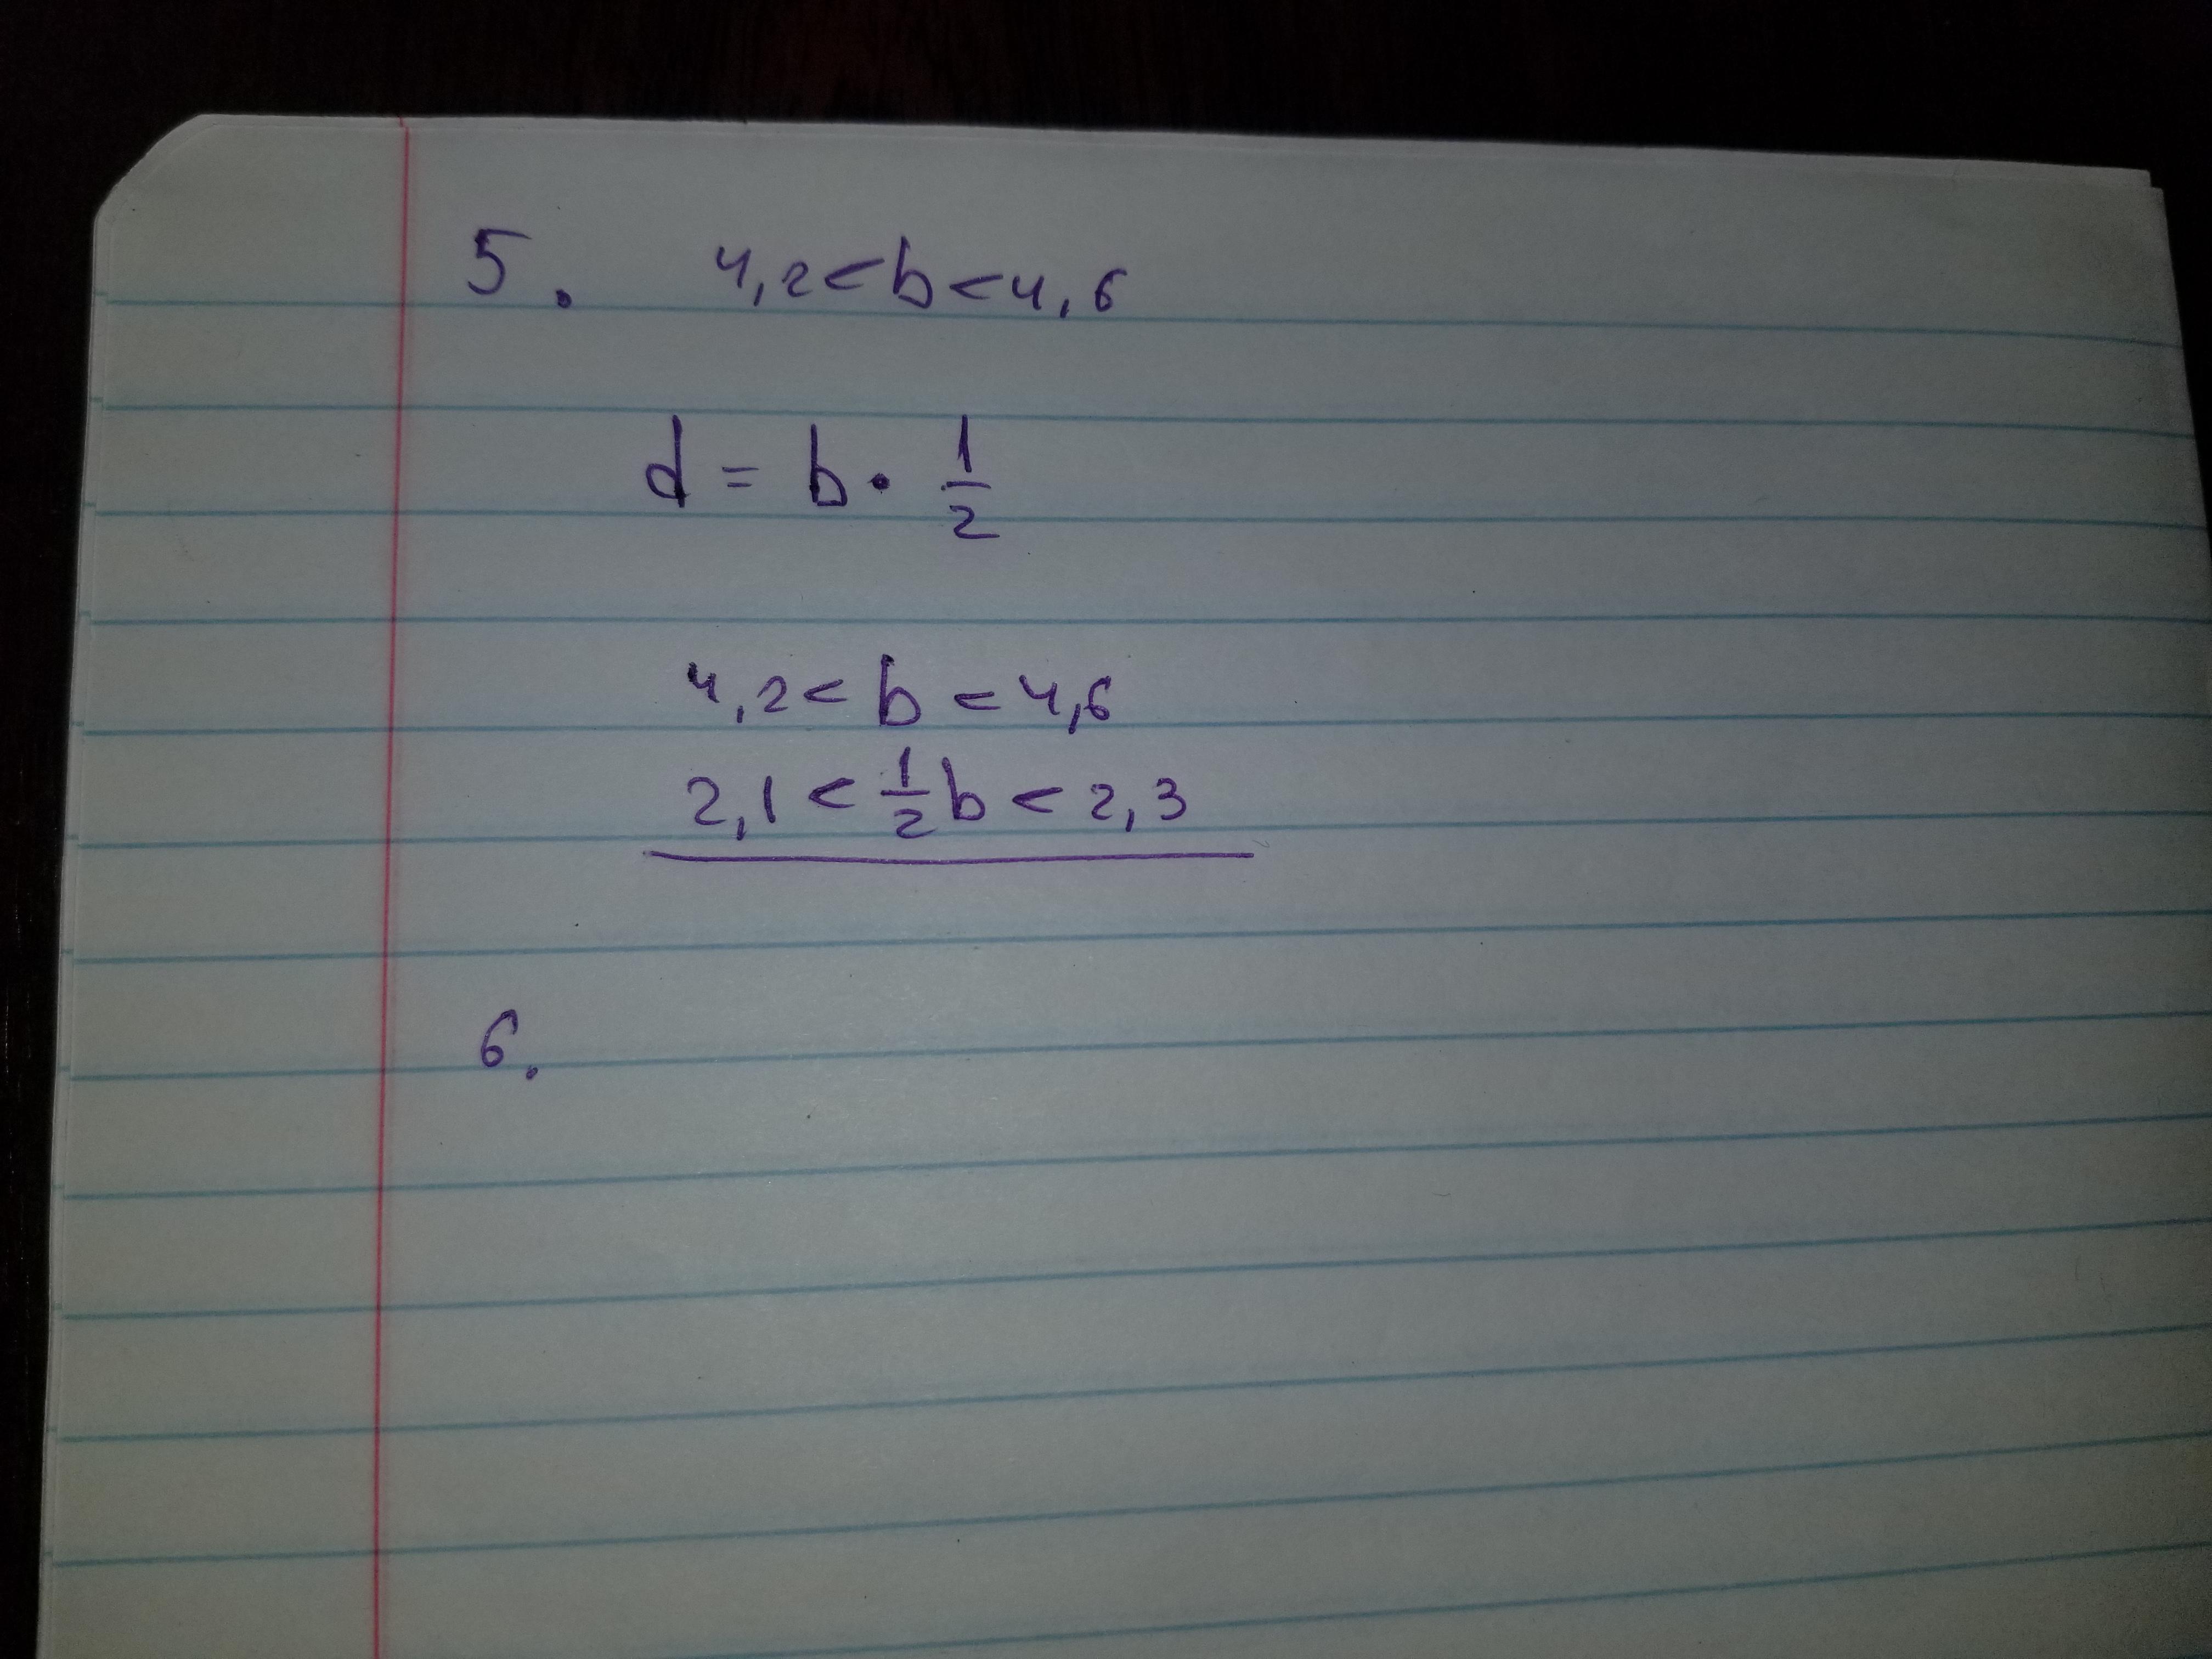 5. 4,2<b<4,6
d = b · 1/2
4,2 < b < 4,6
2,1 < 1/2 b < 2,3
6.